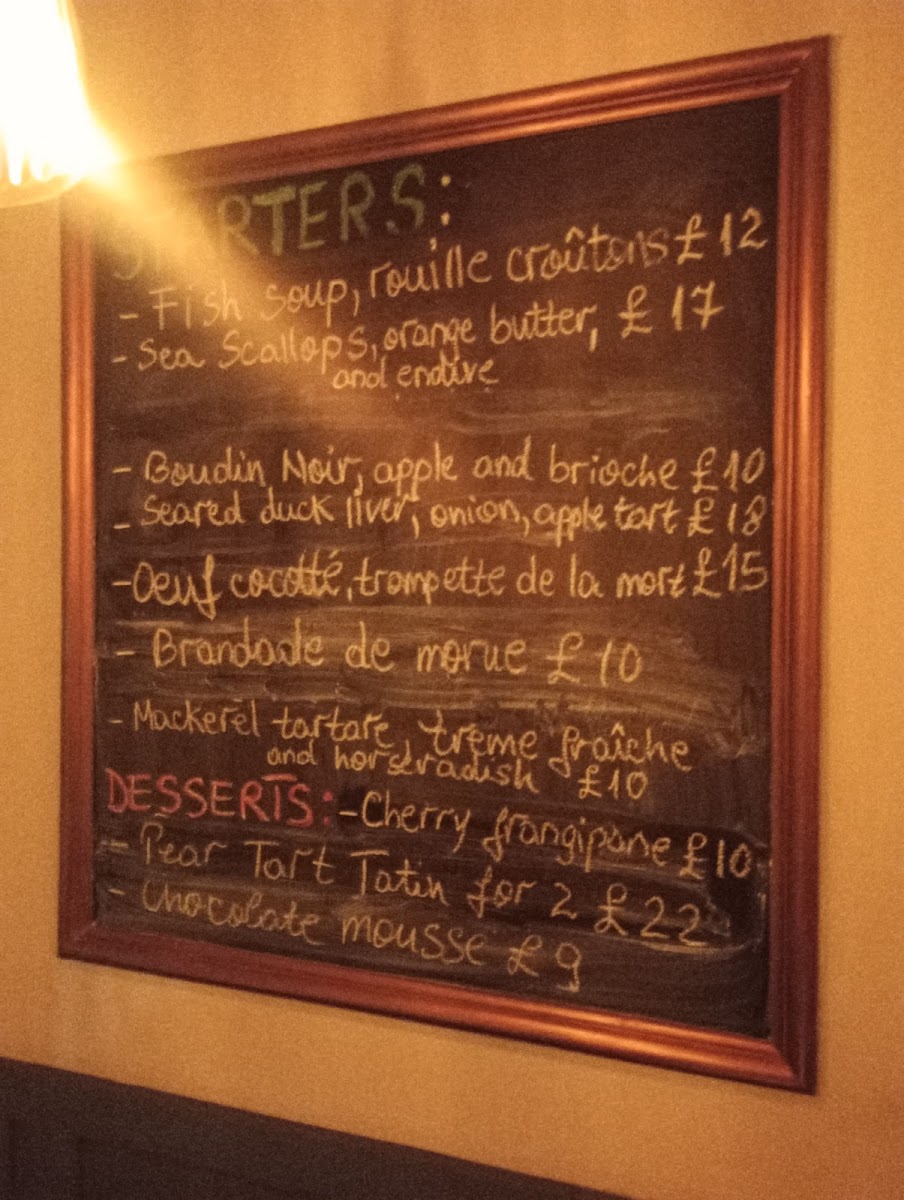 STARTERS:
- Fish soup, rouille croûtons £12
- Sea Scallops, orange butter, £17
and endive
- Boudin Noir, apple and brioche £10
- Seared duck liver, onion, apple tart £18
- Oeuf cocotté, trompette de la mort £15
- Brandade de morue £10
- Mackerel tartare, trème fraîche
and horseradish £10
DESSERTS: - Cherry frangipane £10
- Pear Tart Tatin for 2 £22
- Chocolate mousse £9